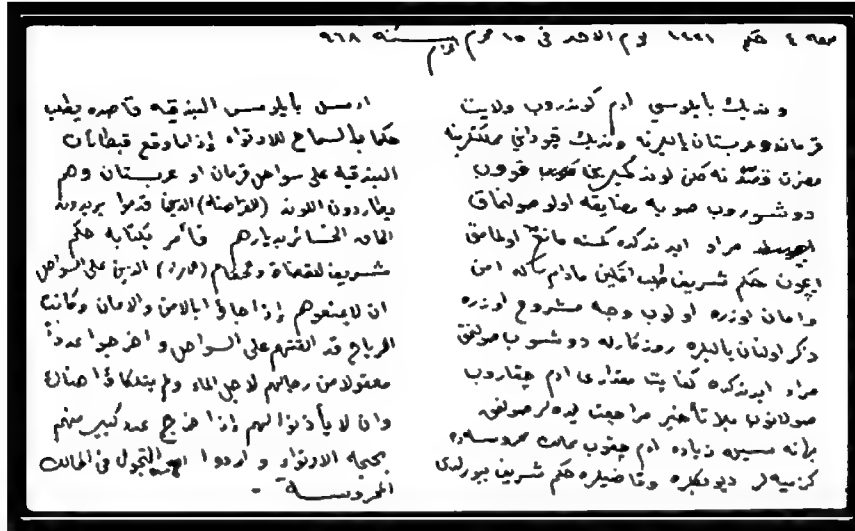 صحه ٤ حكم ١٤٢١ يوم الاحد في ١٥ محرم الحرام سنه ٩٦٨
ونديك بايلوسي ادم كوندروب ولايت
قرمانده وعربستان ياليرنه ونديك قپوداني
مضرت قصدنه كلن لوند قووب
دوشوروب صويه مضايقه اولوب صولنماق
مراد ايدندكده كمسنه مانع اولمامق
ايچون حكم شريف طلب اتمكين مادام كه امن
وامان اوزره اولوب وجه مشروع اوزره
ذكر اولنان ياليره روزكارله دوشوب صولنمق
مراد ايدندكده كفايت مقداري ادم چقاروب
صولانوب بلا تأخير مراجعت ايده لر صولنمق
بهانه سيله زياده ادم چقوب ممالك محروسه ده
كزميه لر ديو بكلره وقاضيلره حكم شريف بيورلدى
ارسل بايلوس البندقيه قاصده يطلب
حكما بالسماح للارتواء إذا ما وقع قبطانات
البندقيه على سواحل قرمان او عربستان وهم
يطاردون اللوند (القراصنه) الذين قدموا يريدون
الحاق الخسائر بديارهم فأمر بكتابه حكم
شريف للقضاة والحكام الذين على السواحل
ان لا يمنعوهم إذا جاؤا بالامن والامان وكانت
الرياح قد القتهم على السواحل واخرجوا عدداً
معقولا من رجالهم لاجل الماء ولم يتلكأوا هناك
وان لا يأذنوا لهم إذا خرج عدد كبير منهم
بحجه الارتواء وارادوا التجول في الممالك
المحروسة -